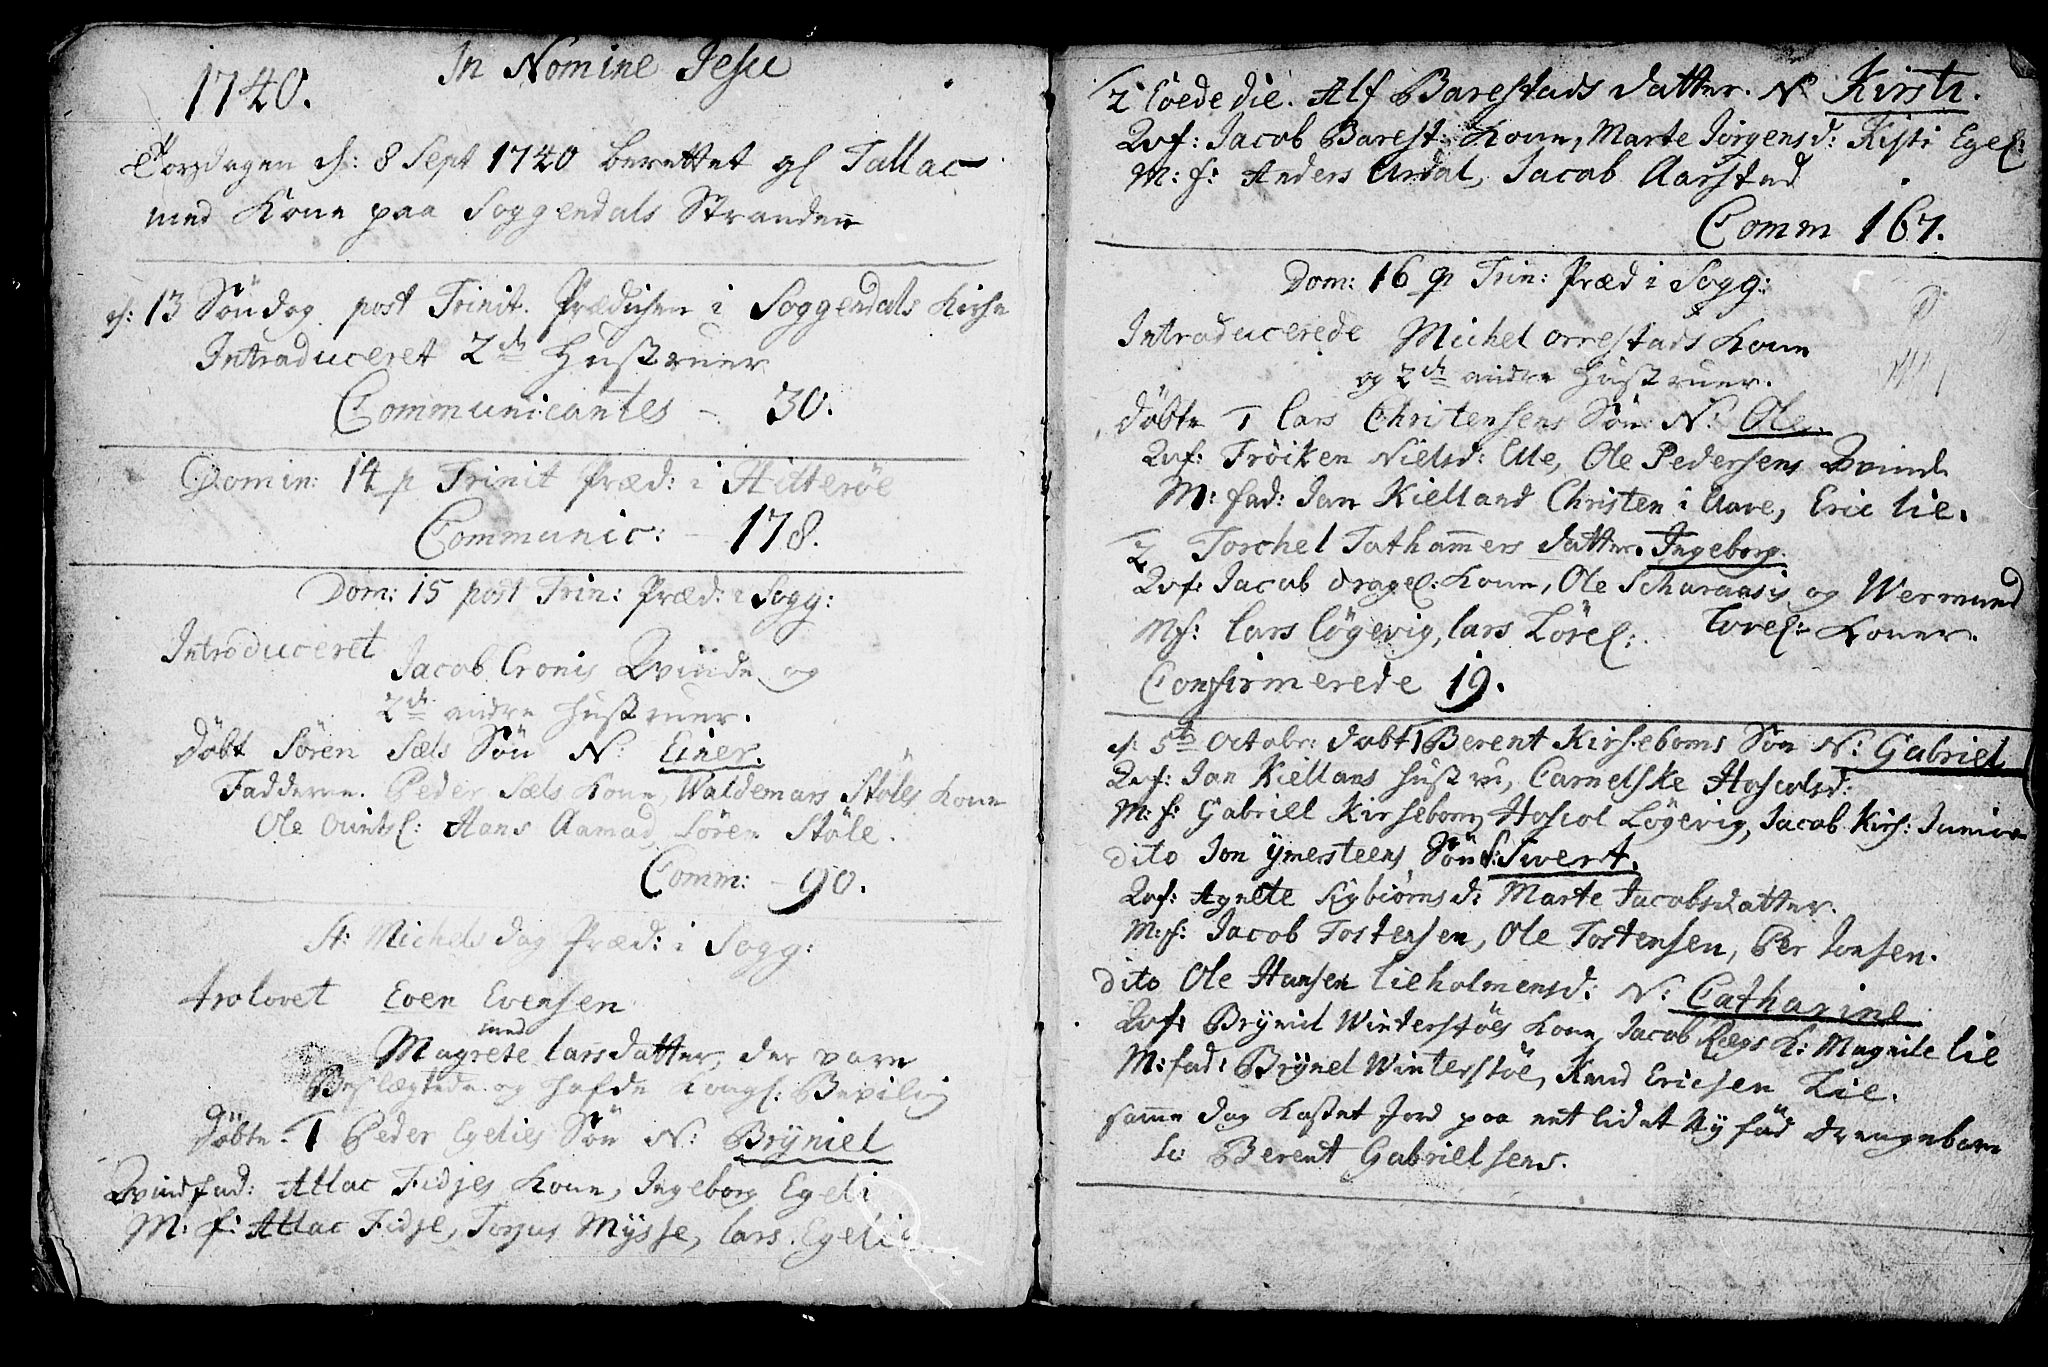 1740.
In Nomine Jesu
Torsdagen d: 8 Sept 1740 berettet gl Tallac
med Kone paa Soggendals Stranden
d: 13 Söndag post Trinit. Prædichen i Soggendals Kirche
Introduceret 2de Hustruer
Communicantes - 30.
Domin: 14 p Trinit Præd: i Hitteröe
Communic: - 178.
Dom: 15 post Trin: Præd: i Sogg:
Introduceret
Jacob Cronis Qvinde og
2de andre Hustruer.
Döbt Sören Sæls Sön N: Einer.
Fadderne. Peder Sæls Kone, Waldemars Stöles Kone
Ole Hans Aamad, Sören Stöle.
Comm: - 90.
St: Michels dag Præd: i Sogg:
trolovet Even Evensen
med
Magrete larsdatter, der vare
Beslægtede og hafde Kongl: Bevilig
Döbte. 1 Peder Egelies Sön N: Brÿniel
Qvindfad: Atlac Fidjes Kone, Ingeborg Egeli
M: f: Atlac Fidje, Torjus Mÿsse, lars Egeli
2 eode die. Alf Barestads datter. N Kirsti.
Qvf: Jacob Barest: Kone, Marte Jörgensd: Kisti Egel:
M: f: Anders Ardal, Jacob Aarstad
Comm 167.
Dom: 16 p Trin: Præd i Sogg:
Introducerede Michel Orrestads Kone
og 2de andre Hustruer.
döbte 1 lars Christensens Sön N: Ole.
Qvf: Fröiken Nielsd: Ole Pedersens Qvinde
M: fad: Jan Kielland Christen i Aare, Eric lie.
2 Torchel Tathammers datter. Ingeborg.
Qvf: Jacob dragel: Kone, Ole og Wermund
Torel: Koner.
Mf: lars lögevig, lars Lörel:
Confirmerede 19.
d: 5te Octobr: dobt 1 Berent Kirseboms Sön N: Gabriel
Qvf: Jan Kiellans Hustru, Carnelske Hoscolsd:
M: f: Gabriel Kirsebom, Hoscol Lögevig, Jacob Kirs: Junior
dito Jon ÿmesteens Sön Sivert.
Qvf: Agnete M: Marte Jacobsdatter.
M: f: Jacob Tostensen, Ole Tostensen, Per Jonsen.
dito Ole Hansen lieholmensd: N: Catharine
Qvf: Brÿnil Winterstöes Kone, Jacob Regs K: Magnile lie
M: fad: Brÿnel Winterstöe, Knud Ericsen Lie.
samme dag Kastet Jord paa eet lidet Nÿföd drengebarn
Berent Gabrielsens.